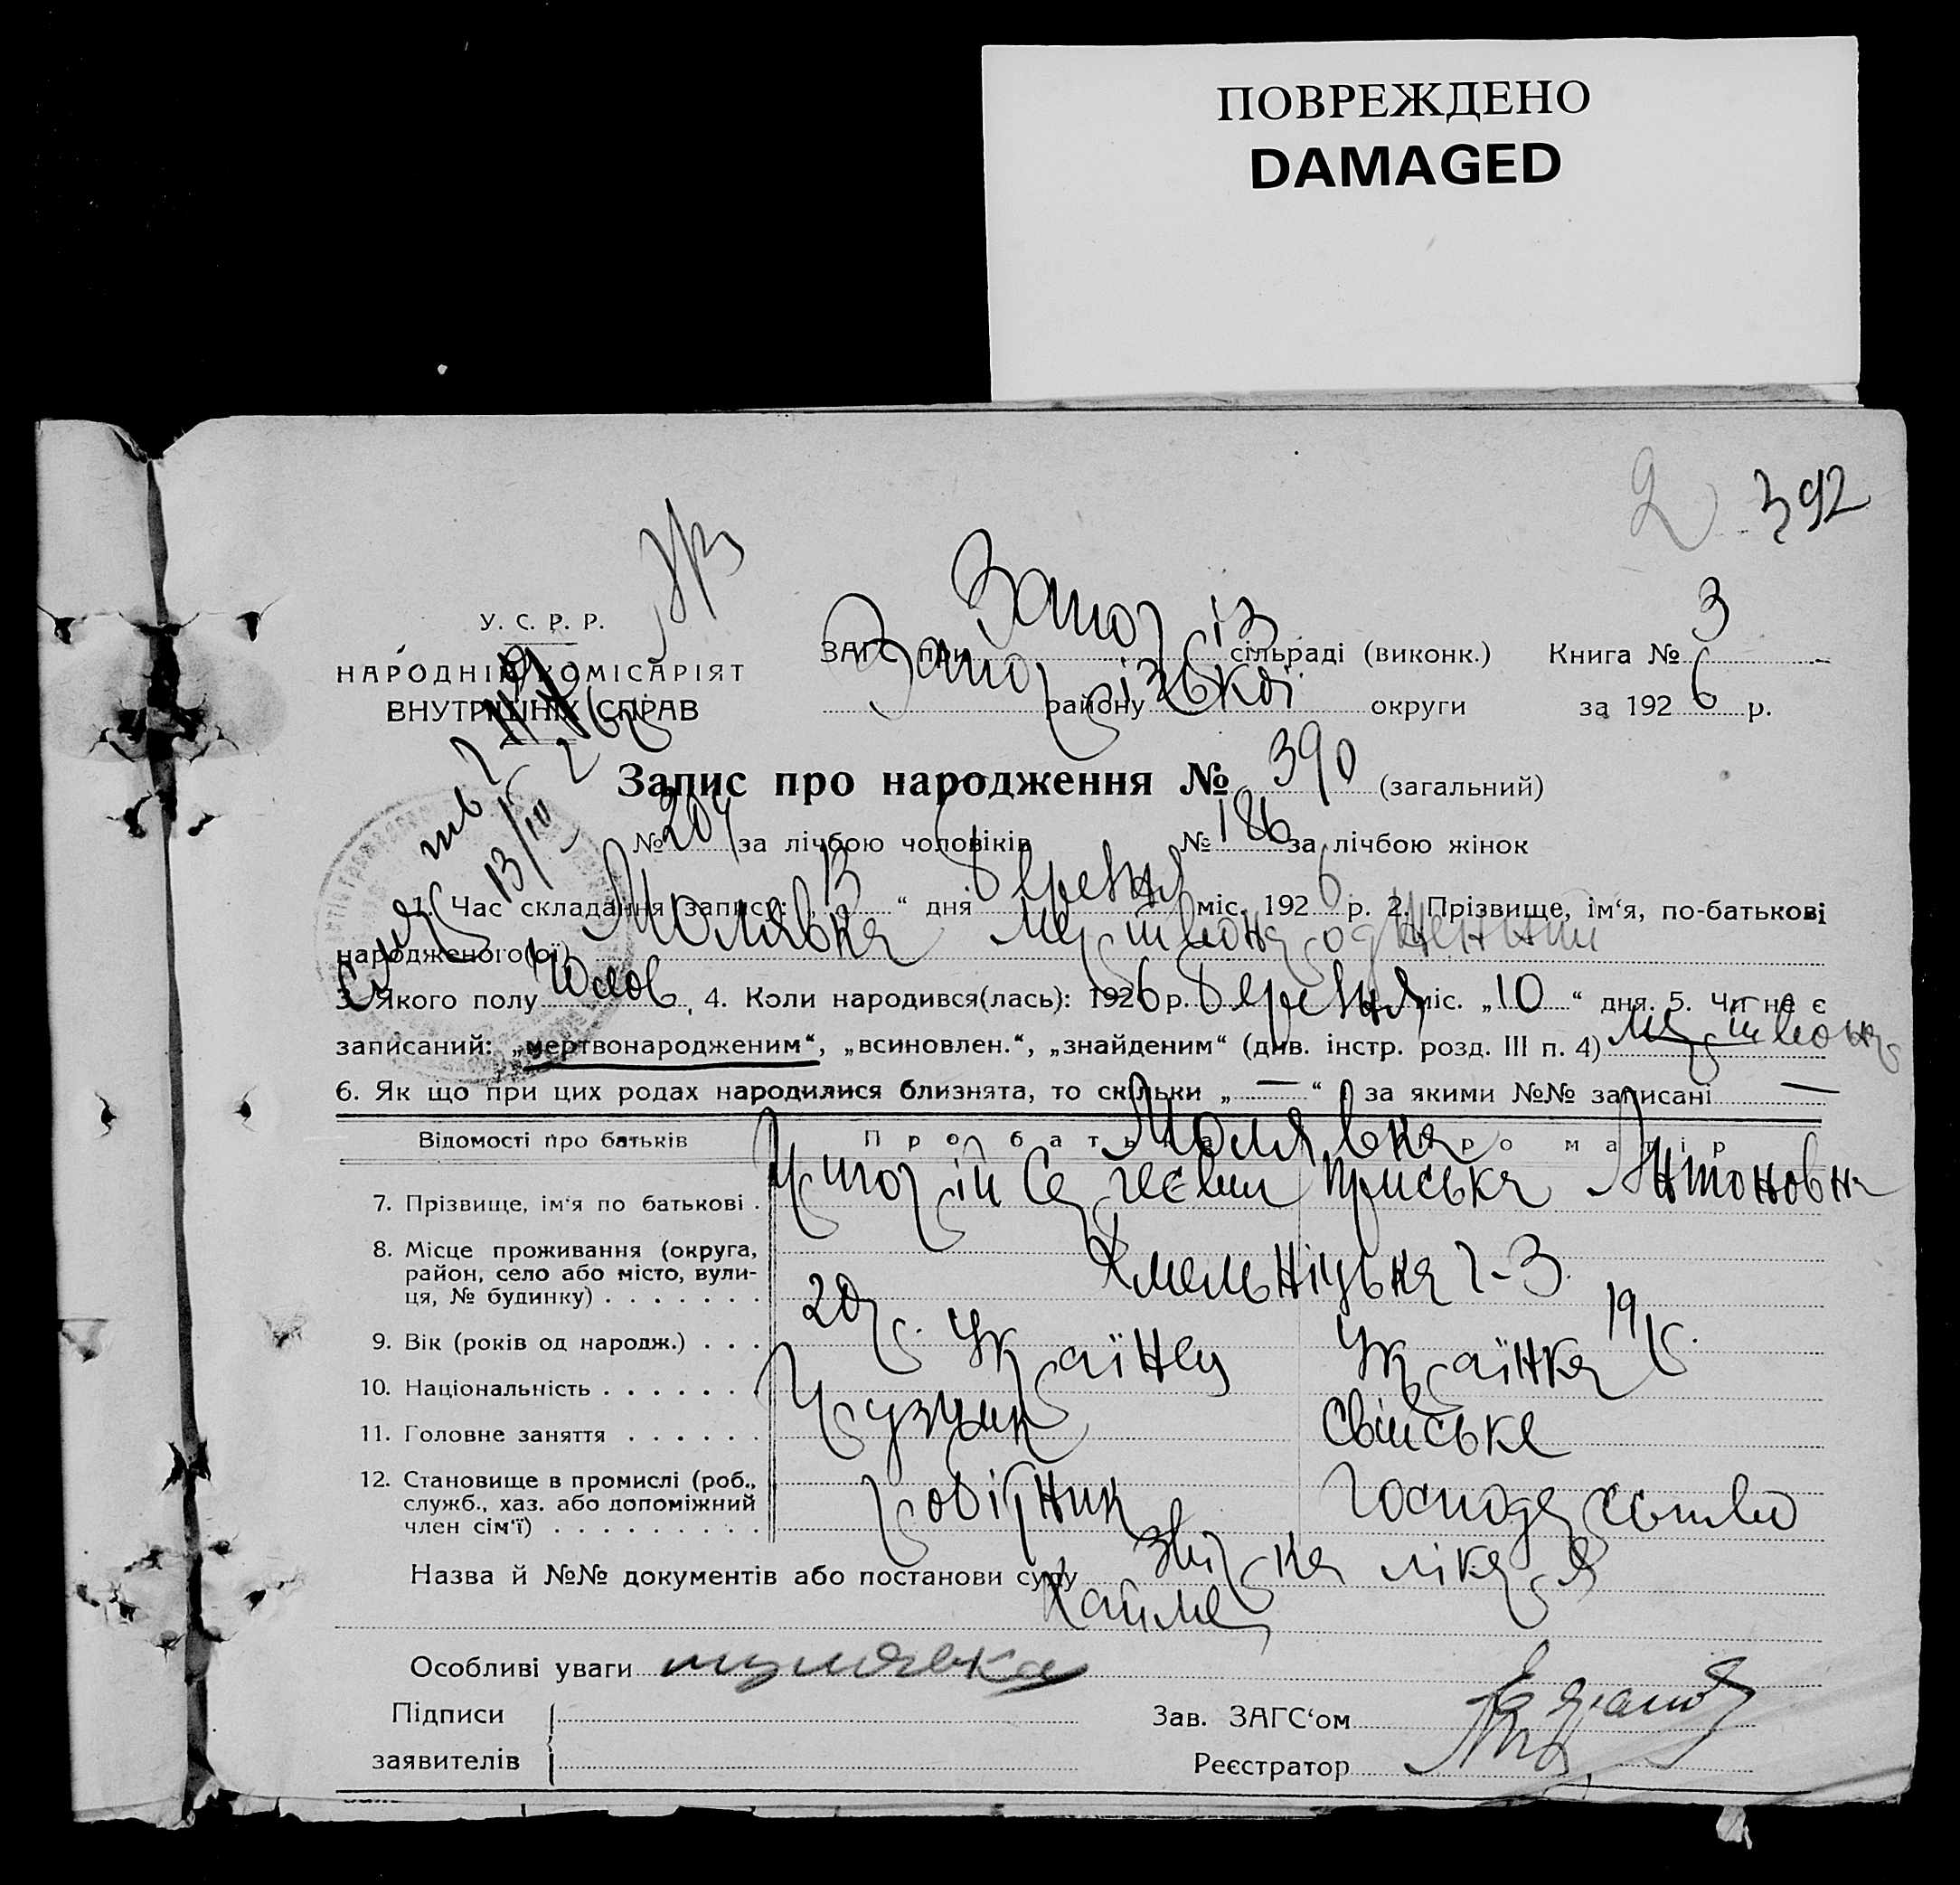 ПОВРЕЖДЕНО
DAMAGED
392
У. С. Р. Р.
НАРОДНІЙ КОМІСАРІЯТ
ВНУТРІШНІХ СПРАВ
ЗАГС при Запоріз сільраді (виконк.) Книга № 3
району Запорізької округи за 1926 р.
Запис про народження № 390 (загальний)
№ 204 за лічбою чоловіків № 186 за лічбою жінок
1. Час складання запису: „13“ дня березня міс. 1926 р. 2. Прізвище, ім‘я, по-батькові
народженого(ої) Молявка мертвонароджений
3. Якого полу Чолов. 4. Коли народився(лась): 1926 р. березня міс. „10“ дня. 5. Чи не є
записаний: „мертвонародженим“, „всиновлен.“, „знайденим“ (див. інстр. розд. III п. 4) мертвонар
6. Як що при цих родах народилися близнята, то скільки „—“ і за якими №№ записані —
Відомості про батьків Про батька Про матір
Молявка
7. Прізвище, ім‘я по батькові Григорій Сергеєвич Пріська Антоновна
8. Місце проживання (округа, район, село або місто, вулиця, № будинку) Хмельніцька 2-3
9. Вік (років од народж.) 20 р. 19 р.
10. Національність Українец Українка
11. Головне заняття Грузчик свійське
12. Становище в промислі (роб., служб., хаз. або допоміжний член сім‘ї) робітник господарство
Назва й №№ документів або постанови суду лікаря
Особливі уваги
Підписи
заявителів
Зав. ЗАГС‘ом
Реєстратор